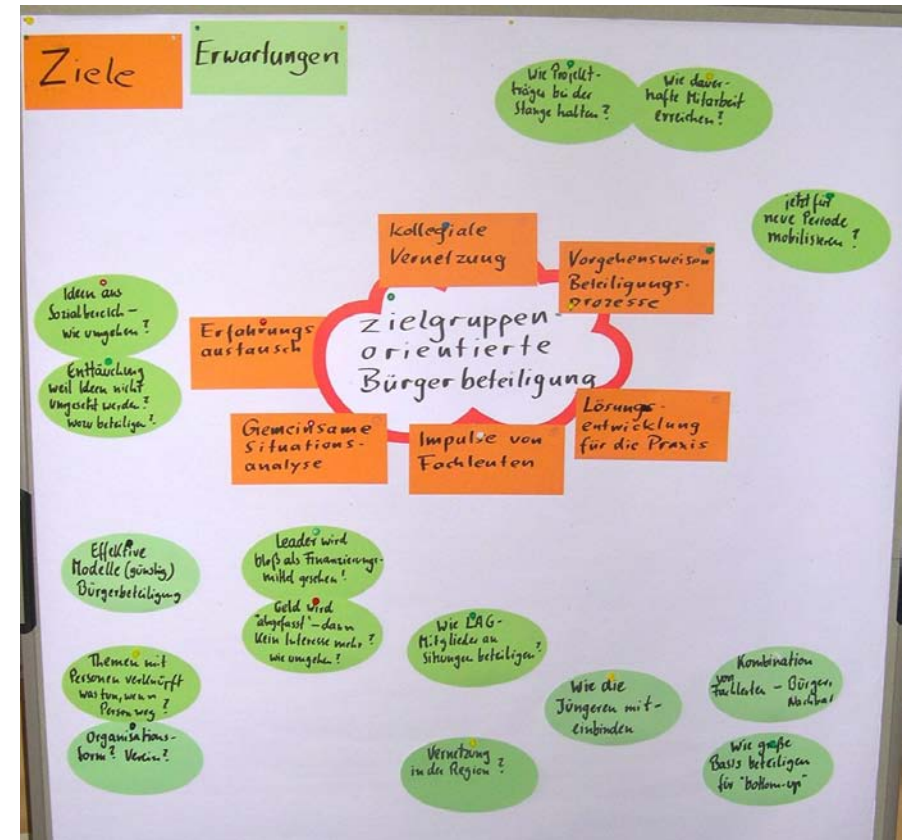 Ziele
Erwartungen
Wie Projekt-
träger bei der
Stange halten?
Wie dauer-
hafte Mitarbeit
erreichen?
jetzt für
neue Periode
mobilisieren?
Kollegiale
Vernetzung
Vorgehensweisen
Beteiligungs-
prozesse
Ideen aus
Sozialbereich –
wie umgehen?
Erfahrungs
austausch
zielgruppen-
orientierte
Bürgerbeteiligung
Enttäuchung
weil Ideen nicht
umgesetzt werden?
wozu beteiligen?
Gemeinsame
Situations-
analyse
Impulse von
Fachleuten
Lösungs-
entwicklung
für die Praxis
Effektive
Modelle (günstig)
Bürgerbeteiligung
Leader wird
bloß als Finanzierungs-
mittel gesehen!
Geld wird
"abgefasst" – dann
kein Interesse mehr?
wie umgehen?
Wie LAG-
Mitglieder an
Sitzungen beteiligen?
Themen mit
Personen verknüpft
was tun, wenn
Person weg?
Organisations-
form? Verein?
Wie die
Jüngeren mit-
einbinden
Kombination
von
Fachleuten – Bürger,
Vernetzung
in der Region?
Wie große
Basis beteiligen
für "bottom-up"